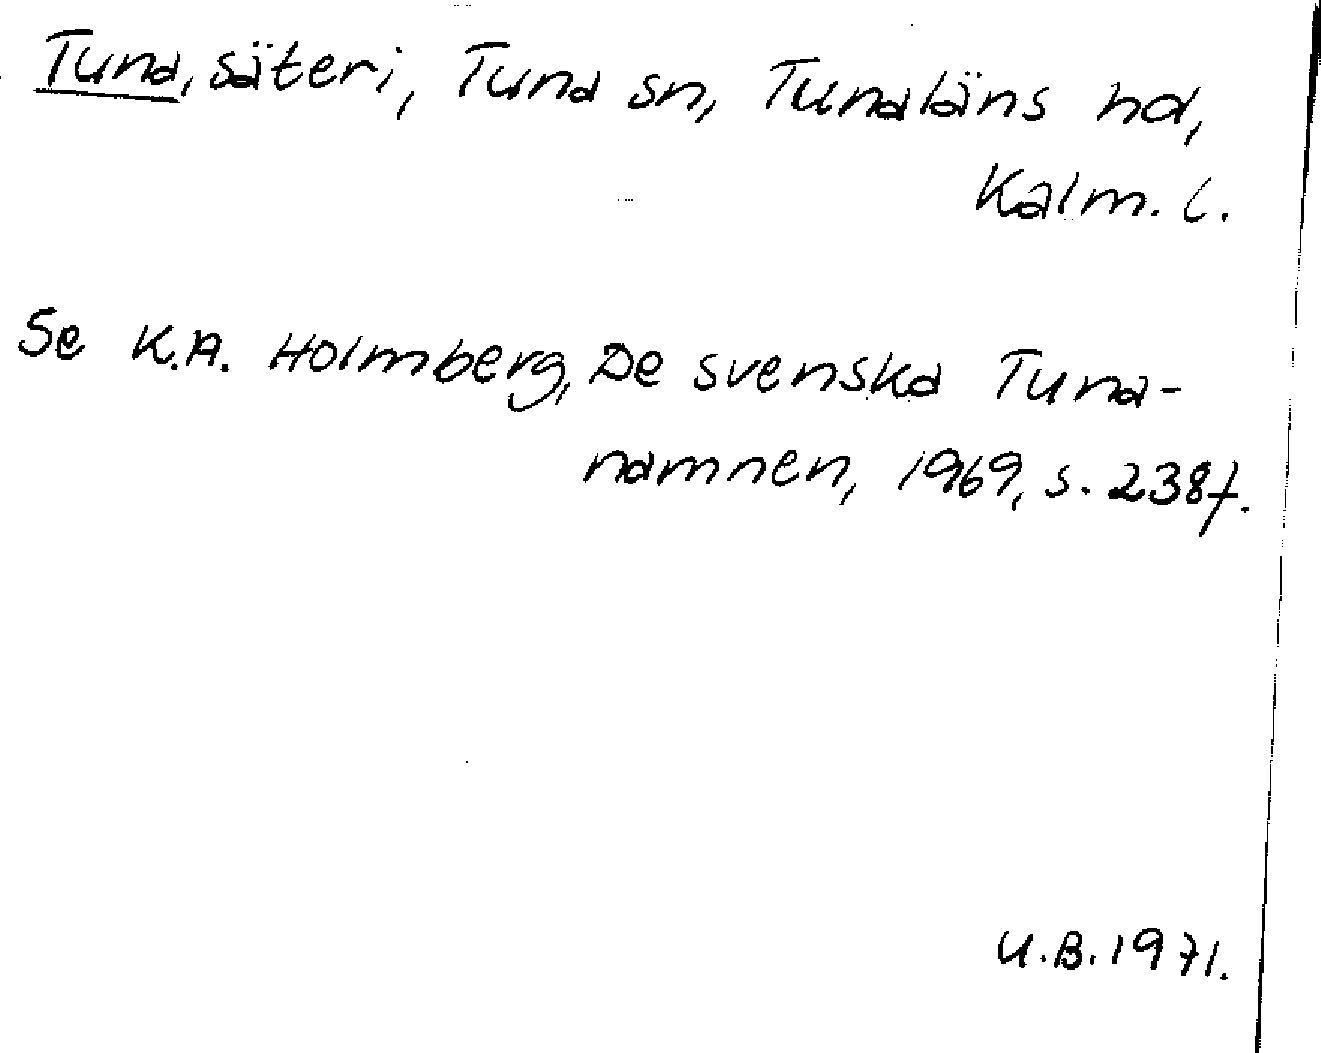 Tuna, säteri, Tuna sn, Tunaläns hd,
Kalm. l.
Se K.A. Holmberg, De svenska Tuna-
namnen, 1969, s. 238f.
U.B. 1971.